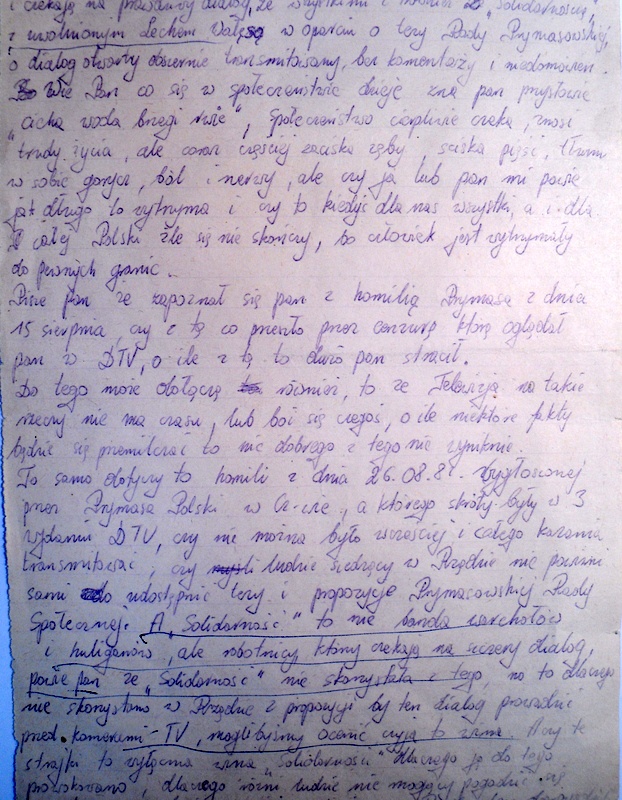 i czekają na prawdziwy dialog, ze wszystkimi i również z "Solidarnością",
z uwolnionym Lechem Wałęsą w oparciu o tezy Rady Prymasowskiej,
o dialog otwarty obszernie transmitowany, bez komentarzy i niedomówień.
Wie Pan co się w społeczeństwie dzieje zna pan przysłowie
"cicha woda brzegi rwie", społeczeństwo cierpliwie czeka, znosi
trudy życia, ale coraz częściej zaciska zęby, ściska pięść, tłumi
w sobie gorycz, ból i nerwy, ale czy ja lub pan mi powie
jak długo to wytrzyma i czy to kiedyś dla nas wszystki, a i dla
całej Polski źle się nie skończy, bo człowiek jest wytrzymały
do pewnych granic.
Pisze pan że zapoznał się pan z homilią Prymasa z dnia
15 sierpnia, czy z tą co przeszło przez cenzurę którą oglądał
pan w DTV, o ile z tą to dużo pan stracił.
Do tego może dołączę również, to że Telewizja na takie
rzeczy nie ma czasu, lub boi się czegoś, o ile niektóre fakty
będzie się przemilczać to nic dobrego z tego nie wyniknie.
To samo dotyczy to homili z dnia 26.08.82 wygłoszonej
przez Prymasa Polski w Cz-wie, a którego skróty były w 3
wydaniu DTV, czy nie można było wcześniej i całego kazania
transmitować, czy ludzie siedzący w Rządzie nie powinni
sami udostępnić tezy i propozycje Prymasowskiej Rady
Społecznej. A "Solidarność" to nie banda warchołów
i huliganów, ale robotnicy którzy czekają na szczery dialog,
powie pan że "Solidarność" nie skorzystała z tego, no to dlaczego
nie skorzystano w Rządzie z propozycji by ten dialog prowadzić
przed kamerami TV, moglibyśmy ocenić czyja to wina. A czy te
strajki to wyłączna wina "Solidarności" dlaczego ją do tego
prowokowano, dlaczego różni ludzie nie mogący pogodzić się